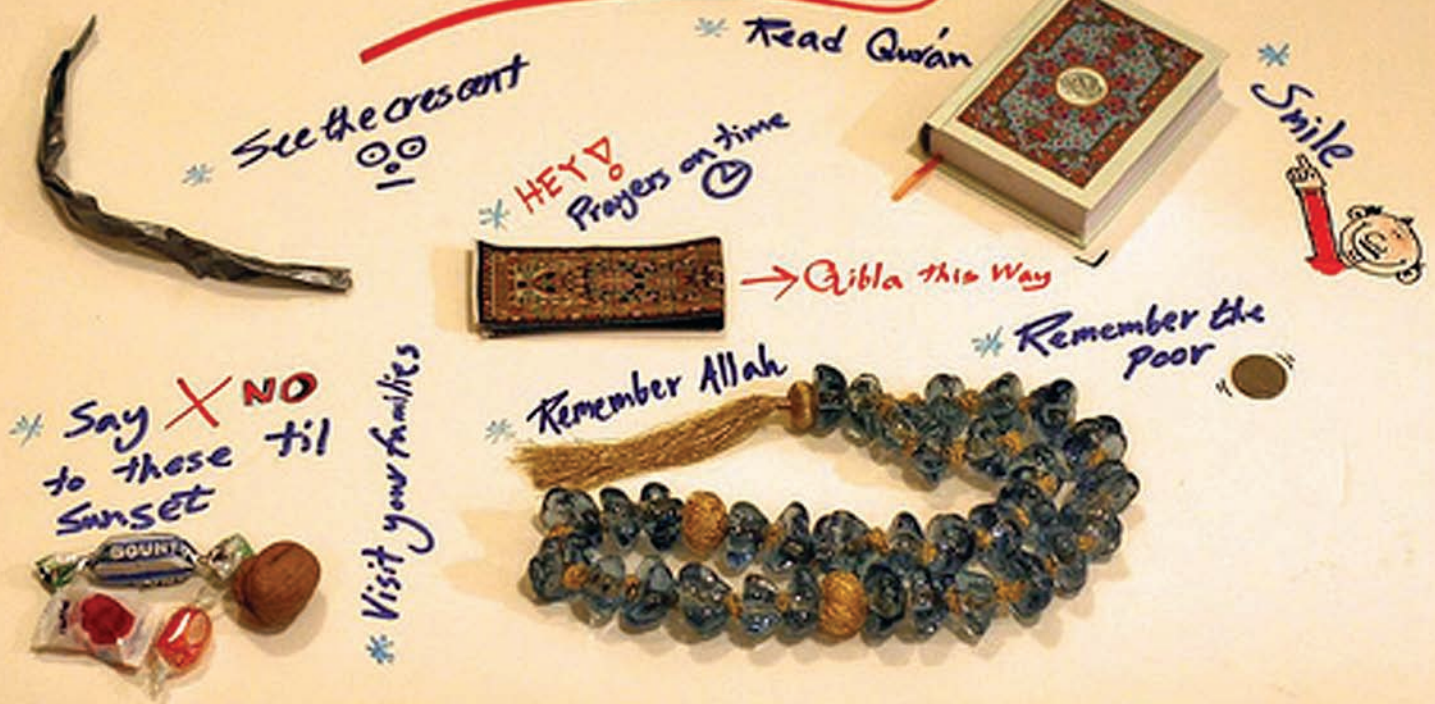 * Read Qurán
* Smile
* See the crescent
* HEY!
Prayers on time
→ Qibla this Way
* Remember the
poor
* Remember Allah
* Say X NO
to these til
sunset
BOUNTY
* Visit your families